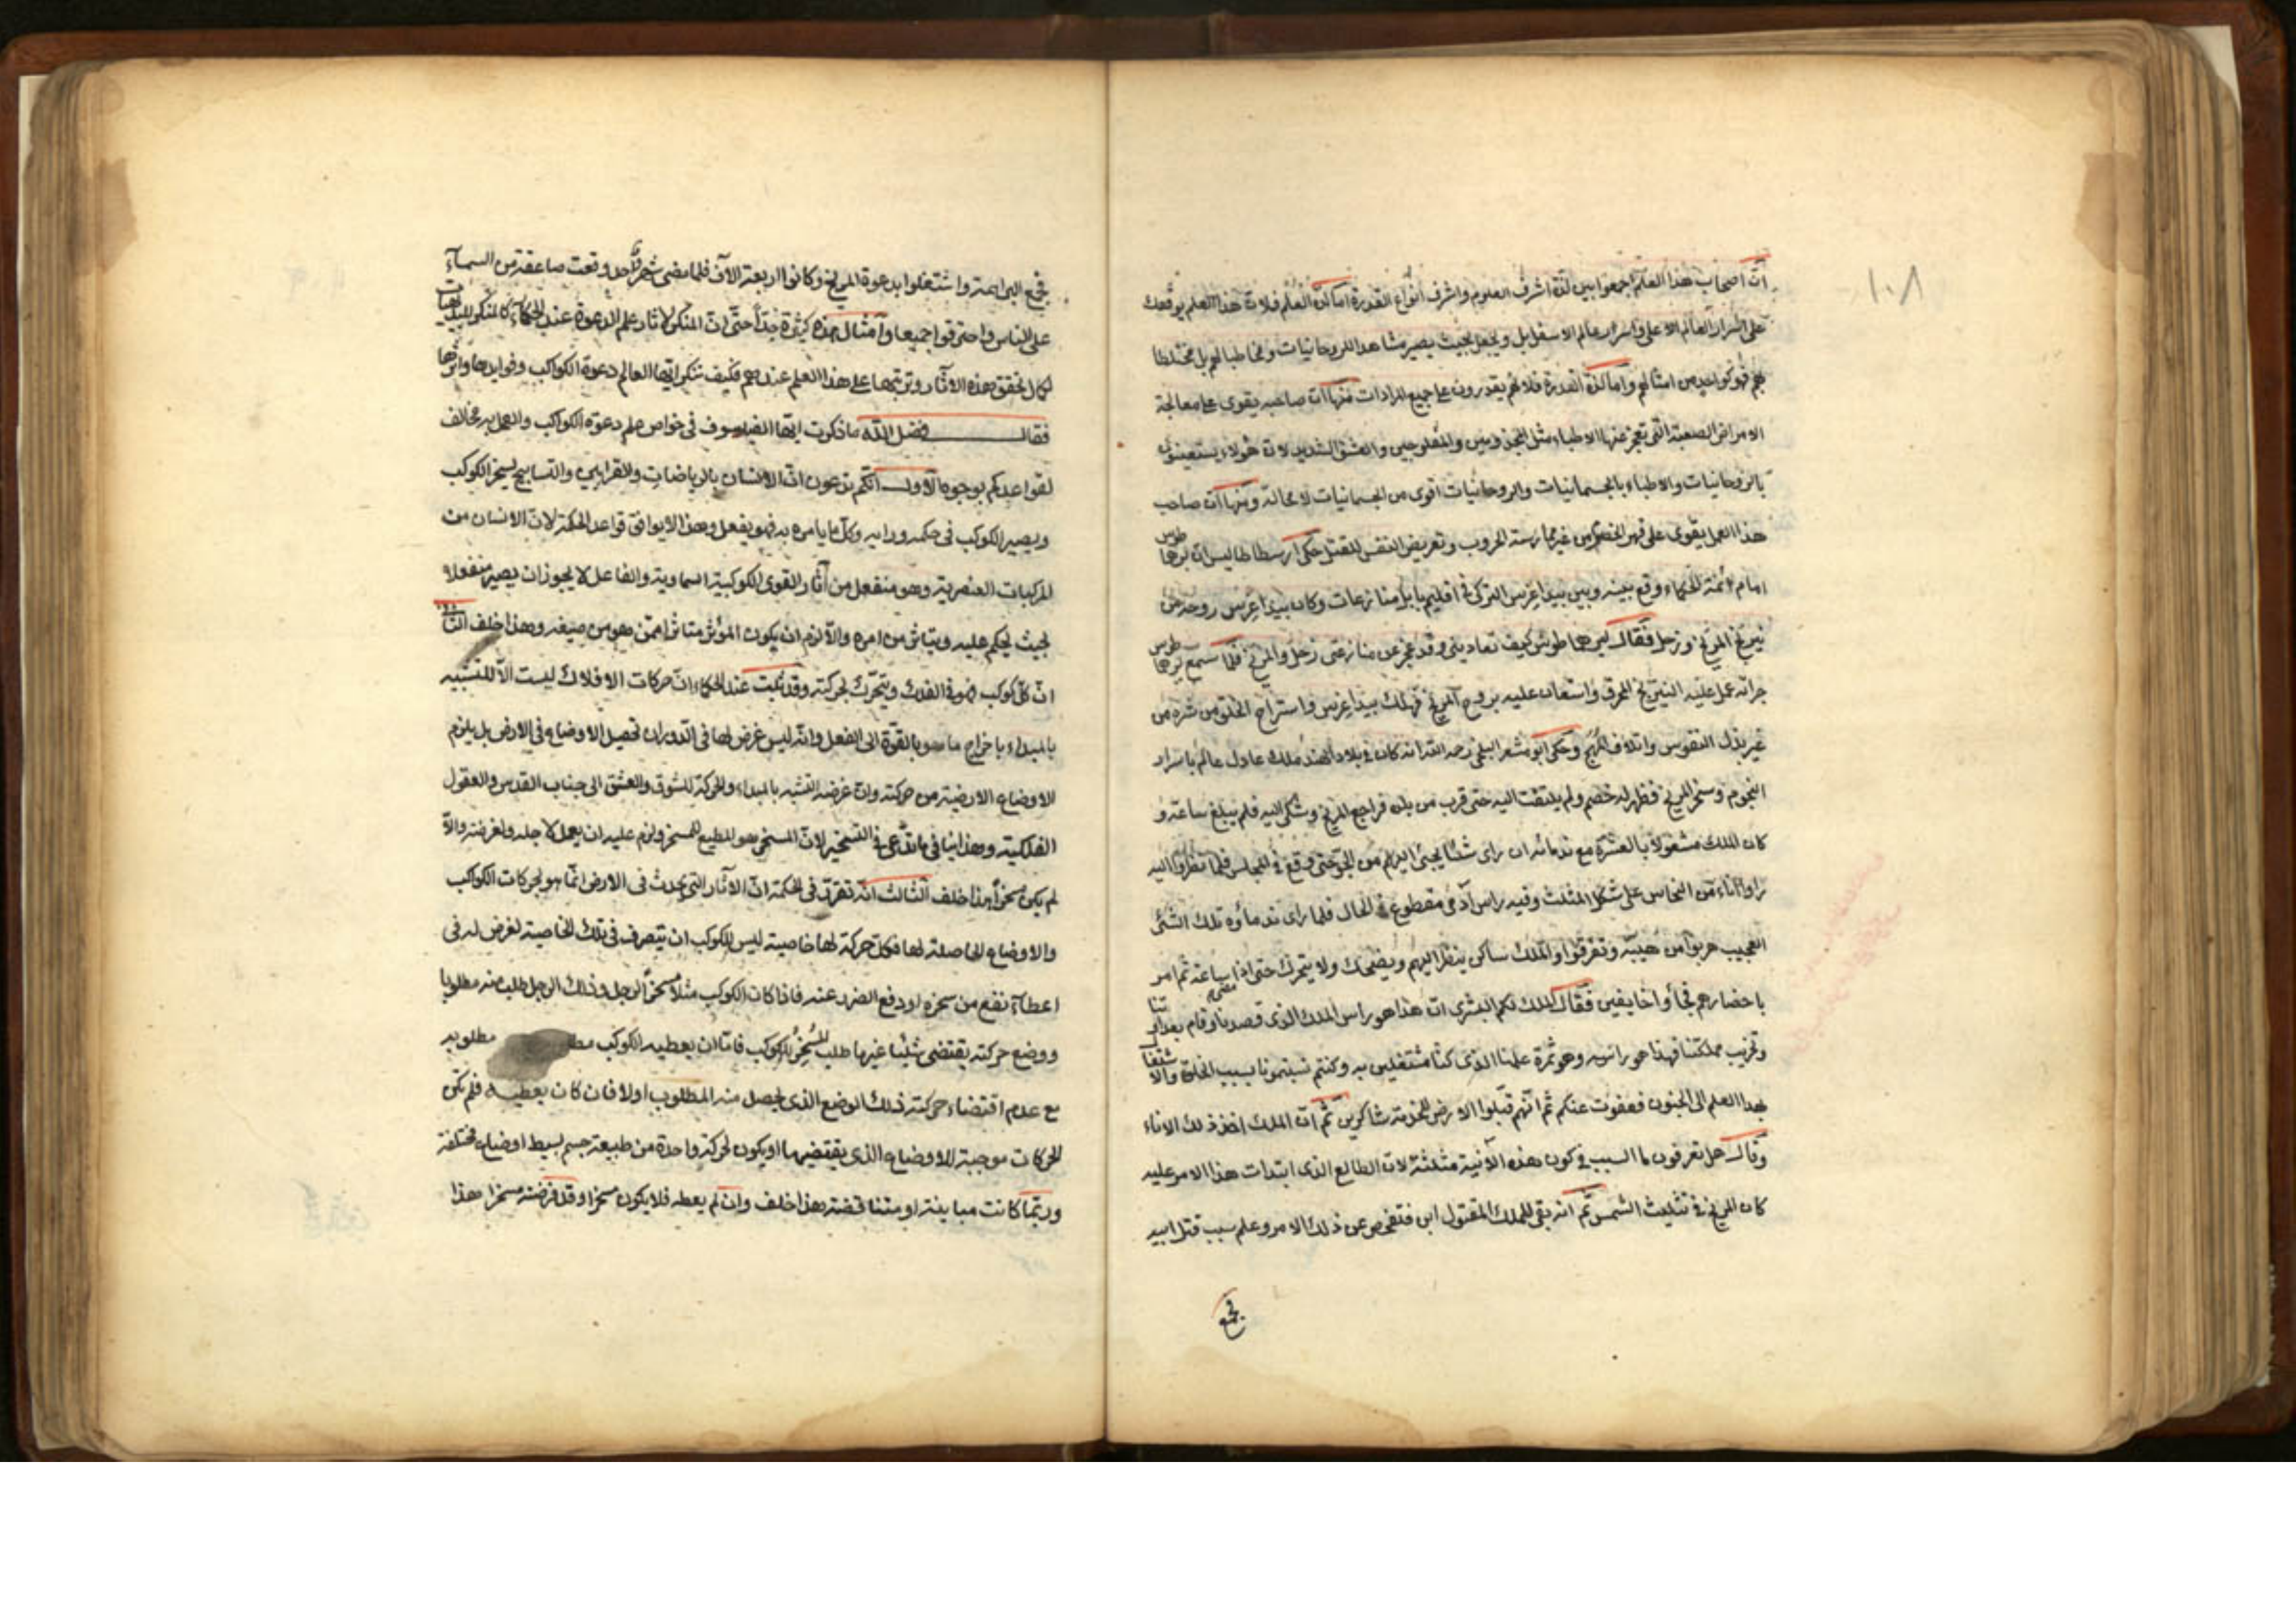 ١٠٨
انّ اصحاب هذا العلم اجمعوا بين لذّة اشرف العلوم واشرف انواع القدرة اما لذّة العلم فلانّ هذا العلم يوقفك
على اسرار العالم الاعلى واسرار عالم الاسفل بل ويجعل بحيث يصير مشاهدا للروحانيات ومخاطبا لهم بل مختلطا
بهم فهو كواحد من امثالهم واما لذة القدرة فلانهم يقدرون على جميع المرادات منها انّ صاحبه يقوى على معالجة
الامراض الصعبة التى تعجز عنها الاطباء مثل المجذومين والمفلوجين والعشق الشديد لانّ هؤلاء يستعينون
بالروحانيات والاطباء بالجسمانيات والروحانيات اقوى من الجسمانيات لا محالة ومنها انّ صاحب
هذا العمل يقوى على قهر الخصوم من غير ممارسة الحروب وتعريض النفس للقتل حكى ارسطاطاليس انّ برهماطوس
امام ائمة الحكماء وقع بينه وبين بيداغرس التركى فى اقليم بابل منازعات وكان بيداغرس روحه من
نيرنج المريخ وزحل فقال لبرهماطوس كيف تعادينى وقد عجز عن منازعتى زحل والمريخ فلمّا سمع برهماطوس
جرأته عمل عليه النيرنج المحرق واستعان عليه بروح المريخ فهلك بيداغرس واستراح الخلق من شره من
غير بذل النفوس واتلاف المهج وحكى ابو معشر البلخى رحمه الله انه كان فى بلاد الهند ملك عادل عالم باسرار
النجوم وسخر المريخ فظهر له خصم ولم يلتفت اليه حتى قرب من بلده فراجع المريخ وشكى اليه فلم يبلغ ساعة و
كان الملك مشغولا بالعشرة مع ندمائه ان راى شئا يجىء اليهم من الجو حتى وقع فى المجلس فلما نظروا اليه
راوا اناء من النحاس على شكل المثلث وفيه راس آدمى مقطوع فى الحال فلما راى ندماؤه تلك الشئ
العجيب هربوا من هيبته وتفرقوا والملك ساكن ينظر اليهم ويضحك ولا يتحرك حتى اذا مضى ساعة ثم امر
باحضارهم فجاؤا خايفين فقال الملك لكم البشرى انّ هذا هو راس الملك الذى قصدنا وقام بعداوتنا
وتخريب مملكتنا فهذا هو راسه وهو ثمرة علمنا الذى كنا مشتغلين به وكنتم تنسبونا بسبب الخلوة والاشتغال
بهذا العلم الى الجنون فعفوت عنكم ثم انهم قبلوا الارض للخدمة شاكرين ثم انّ الملك اخذ ذلك الاناء
وقال هل تعرفون ما السبب فى كون هذه الآنية مثلثة لانّ الطالع الذى ابتدات هذا الامر عليه
كان المريخ فى تثليث الشمس ثم انه بقى للملك المقتول ابن فتفحص عن ذلك الامر وعلم سبب قتل ابيه
فجمع
فجمع البراهمة واشتغلوا بدعوة المريخ وكانوا اربعة الآف فلما مضى شهر واحد وقعت صاعقة من السمآء
على الناس واحترقوا جميعا وامثال هذه كثيرة جدّا حتّى انّ المنكر لاثار علم الدعوة عند الحكماء كالمنكر للبديهيات
لكمال تحقق هذه الاثار وترتبها على هذا العلم عندهم فكيف تنكر ايّها العالم دعوة الكواكب وفوايدها واثرها
فقال فضل الله ما ذكرت ايّها الفيلسوف فى خواص علم دعوة الكواكب والعمل به مخالف
لقواعدكم بوجوه الاول انّكم تدعون انّ الانسان بالرياضات والقرابين والتسابيح يسخر الكوكب
ويصير الكوكب فى حكمه ورايه وكل ما يامره به فهو يفعل وهذا لا يوافق قواعد الحكمة لانّ الانسان من
المركبات العنصرية وهو منفعل من آثار القوى الكوكبية السماوية والفاعل لا يجوز ان يصير منفعلا
بحيث يحكم عليه ويتاثر من امره والّا لزم ان يكون المؤثر متاثرا ممّن هو من صيغه وهذا خلف الثانى
انّ كلّ كوكب فهو فى الفلك ويتحرّك بحركته وقد ثبت عند الحكماء انّ حركات الافلاك ليست الّا للتشبيه
بالمبداء باخراج ما هو بالقوّة الى الفعل وانّه ليس غرض لها فى الدوران تحصيل الاوضاع فى الارض بل يلزم
الاوضاع الارضية من حركته وانّ غرضه التشبه بالمبداء والحركة للشوق والعشق الى جناب القدس والعقول
الفلكية وهذا ينافى ما تدّعى فى التسخير لانّ المسخر هو المطيع للمسخر ولزم عليه ان يعمل لاجله ولغرضه والّا
لم يكن مسخرا هذا خلف الثالث انّه تقرّر فى الحكمة انّ الاثار التى تحدث فى الارض انّما هو لحركات الكواكب
والاوضاع الحاصلة لها فكلّ حركة لها خاصية ليس للكوكب ان يتصرف فى تلك الخاصية لغرض له فى
اعطآء نفع من سخره او دفع الضرر عنه فاذا كان الكوكب مثلا مسخرا لرجل وذلك الرجل طلب منه مطلوبا
ووضع حركته يقتضى شئيا غير ما طلب المسخر للكوكب فامّا ان يعطيه الكوكب مطلوبه
مع عدم اقتضاء حركته ذلك الوضع الذى يحصل منه المطلوب اولا فان كان يعطيه فلم تكن
الحركات موجبة للاوضاع الذى يقتضيها او يكون لحركة واحدة من طبيعة جسم بسيط اوضاع مختلفة
وربّما كانت مباينة او متناقضة هذا خلف وان لم يعطه فلا يكون مسخرا وقد فرضته مسخرا هذا